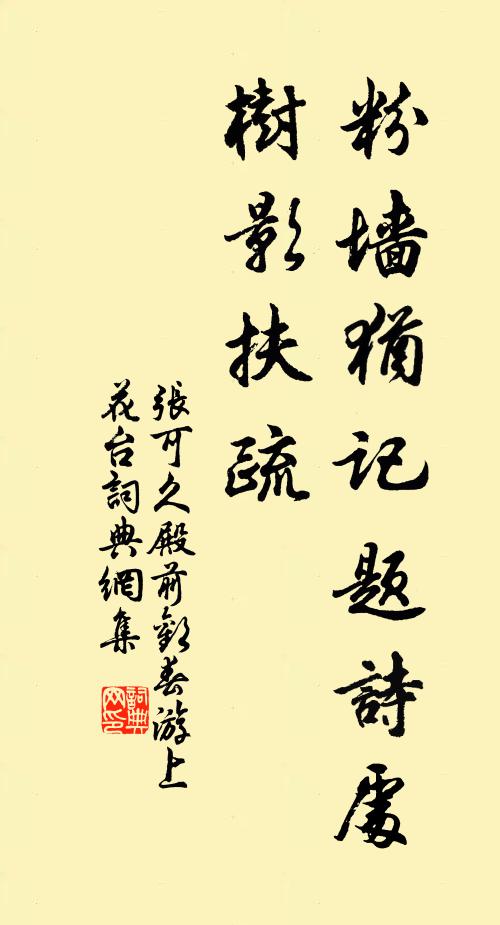 粉墙猶记题詩處
樹影扶疏
張可久殿前歡春游上
花台詞典網集
詞典网印